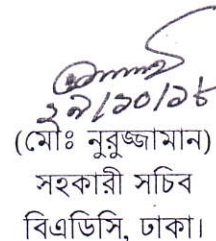 ২৯/১০/১৮
(মৌঃ নুরুজ্জামান)
সহকারী সচিব
বিএডিসি, ঢাকা।